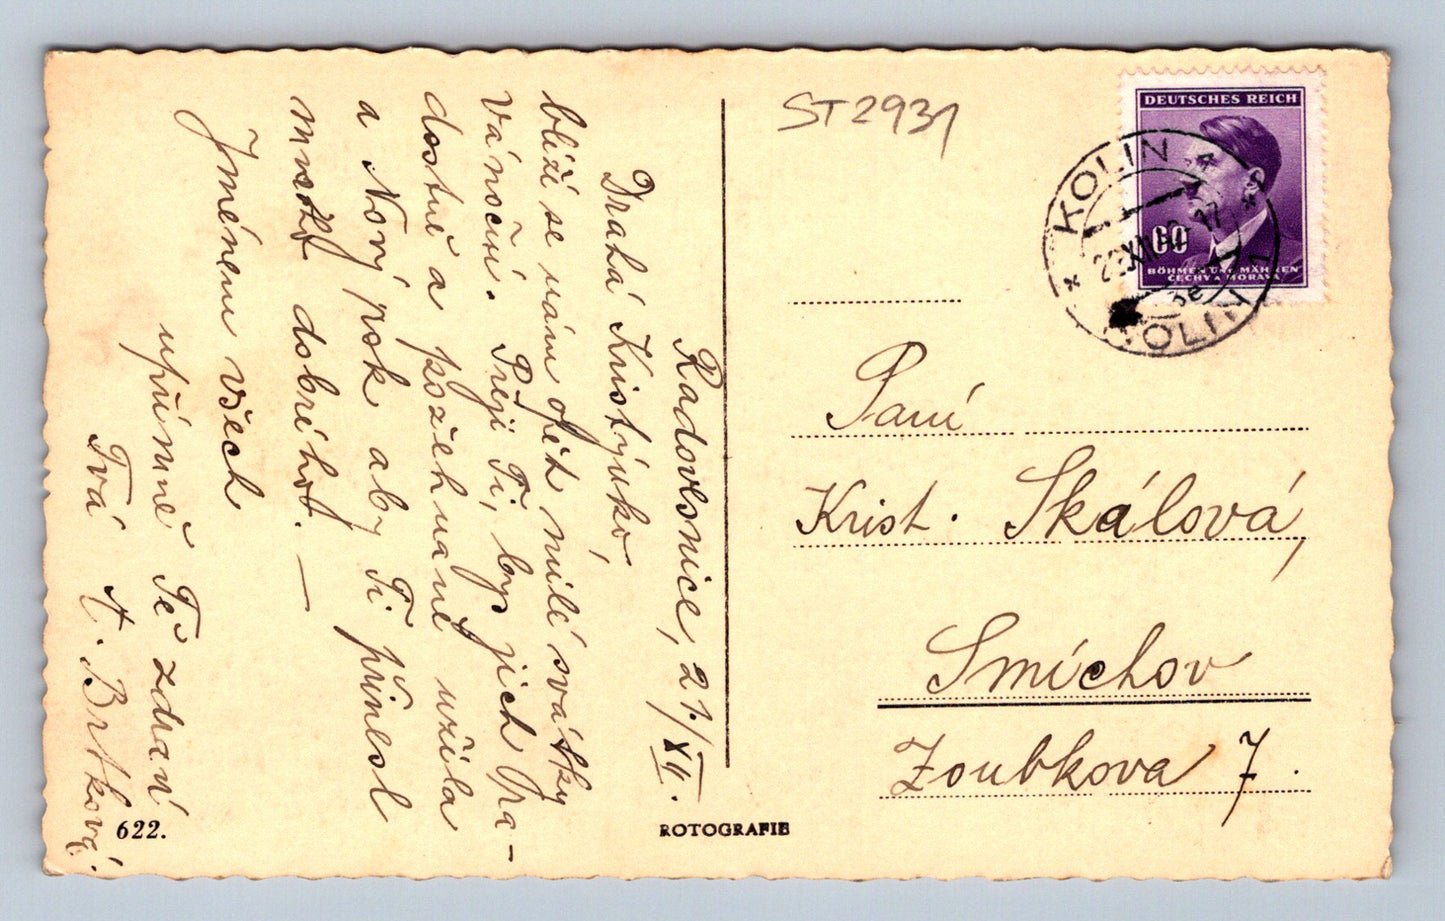 Radovesnice, 21./XII.
Drahá Kristýnko,
blíží se nám opět milé svátky
Vánoční. Přeji Ti, by jich Ura-
dostně a požehnaně užila
a Nový rok aby Ti přinesl
mnoho dobrého. —
Jménem všech
upřímně Tě zdraví
Tvá A. Brtková.
622.
ROTOGRAFIE
ST2931
DEUTSCHES REICH
60
BÖHMEN UND MÄHREN
ČECHY A MORAVA
KOLIN 1
KOLIN 1
Paní
Krist. Skálová,
Smíchov
Zoubkova 7.